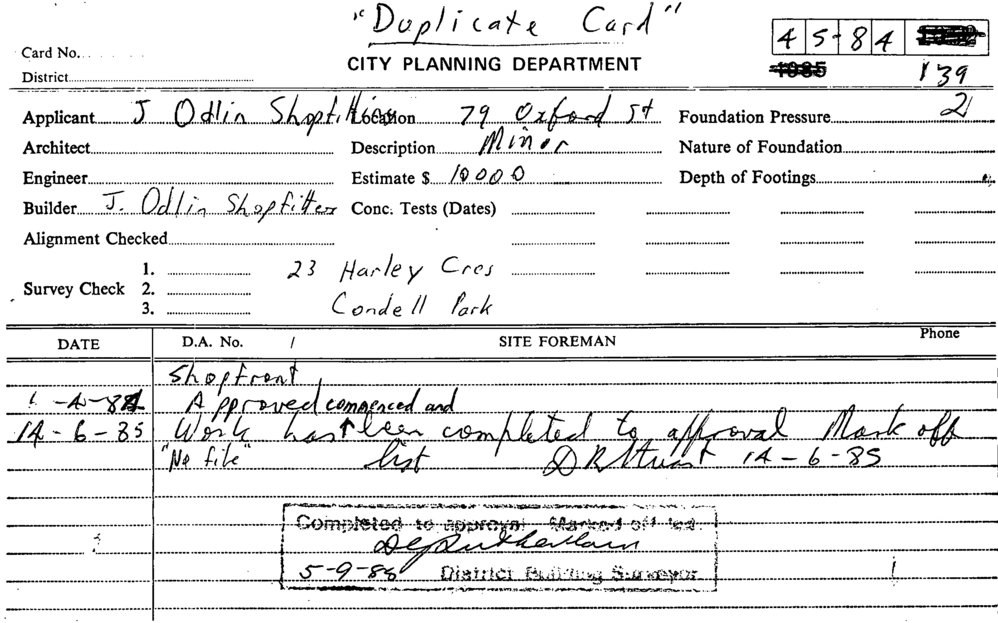 "Duplicate Card"
Card No.
CITY PLANNING DEPARTMENT
45-84
District
1985
139
Applicant J Odlin Shopfitting Location 79 Oxford St Foundation Pressure 2
Architect Description Minor Nature of Foundation
Engineer Estimate $ 10000 Depth of Footings
Builder J. Odlin Shopfitter Conc. Tests (Dates)
Alignment Checked
1. 23 Harley Cres
Survey Check 2.
3. Condell Park
DATE D.A. No. / SITE FOREMAN Phone
Shopfront
Approved commenced and
14-6-85 Work has been completed to approval Mark off
"No file" list 14-6-85
Completed to approval. Marked off list.
5-9-88 District Building Surveyor